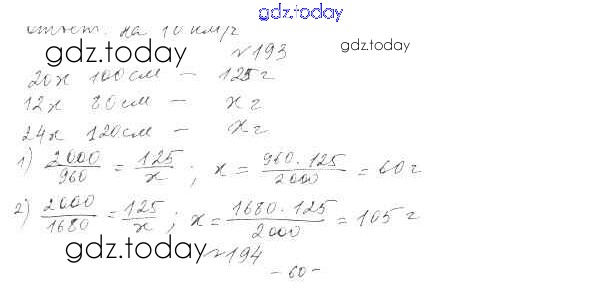 gdz.today
Ответ: на 10 км/ч
gdz.today
№193
gdz.today
20х 100см — 125г
12х 80см — х г
24х 120см — х г
1) 2000/960 = 125/х ; х = 960·125/2000 = 60 г
2) 2000/1680 = 125/х ; х = 1680·125/2000 = 105 г
gdz.today
№194
-60-